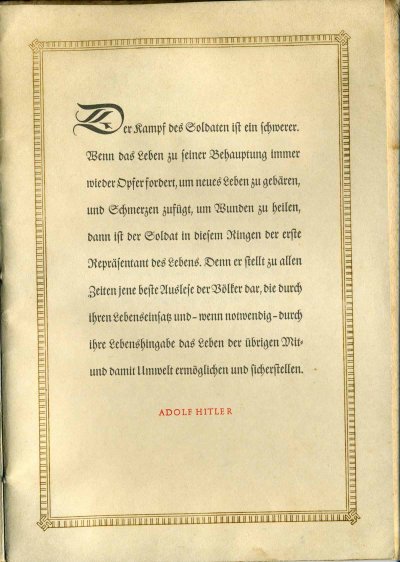 Der Kampf des Soldaten ist ein schwerer.
Wenn das Leben zu seiner Behauptung immer
wieder Opfer fordert, um neues Leben zu gebären,
und Schmerzen zufügt, um Wunden zu heilen,
dann ist der Soldat in diesem Ringen der erste
Repräsentant des Lebens. Denn er stellt zu allen
Zeiten jene beste Auslese der Völker dar, die durch
ihren Lebenseinsatz und - wenn notwendig - durch
ihre Lebenshingabe das Leben der übrigen Mit-
und damit Umwelt ermöglichen und sicherstellen.
ADOLF HITLER